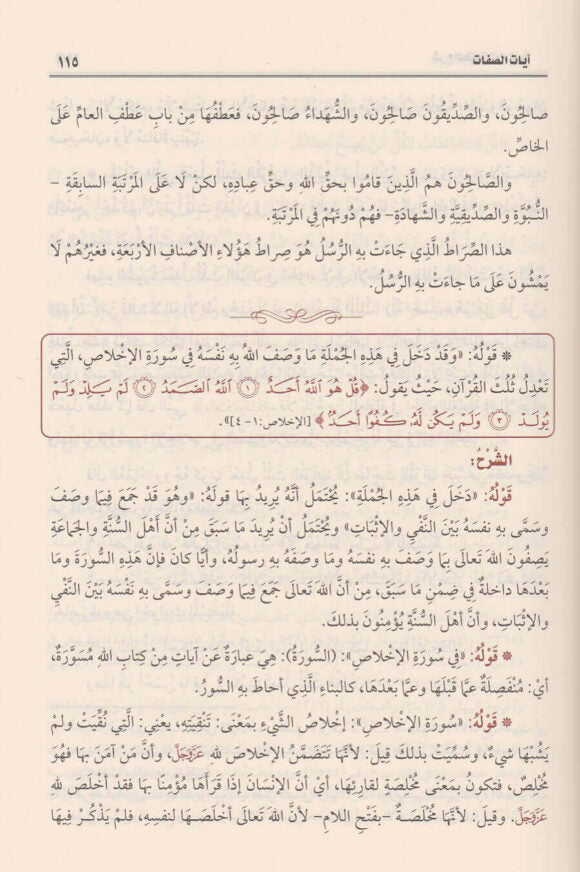 آيات الصفات ١١٥
صَالِحُونَ، والصِّدِّيقُونَ صَالِحُونَ، والشُّهَدَاءُ صَالِحُونَ، فعَطْفُهَا مِنْ بابِ عَطْفِ العامِّ عَلَى
الخاصِّ.
والصَّالِحُونَ همُ الَّذِينَ قامُوا بحقِّ اللهِ وحقِّ عِبادِهِ، لكنْ لَا عَلَى المَرْتَبَةِ السابقَةِ -
النُّبُوَّةِ والصِّدِّيقِيَّةِ والشَّهادَةِ- فهُمْ دُونَهُمْ فِي المَرْتَبَةِ.
هذا الصِّرَاطُ الَّذِي جاءَتْ بهِ الرُّسُلُ هُوَ صِراطُ هَؤُلَاءِ الأَصْنافِ الأرْبَعَةِ، فغَيْرُهُمْ لَا
يَمْشُونَ عَلَى مَا جاءَتْ بِهِ الرُّسُلُ.
* قَوْلُهُ: «وَقَدْ دَخَلَ فِي هَذِهِ الجُمْلَةِ مَا وَصَفَ اللهُ بِهِ نَفْسَهُ فِي سُورَةِ الإِخْلَاصِ، الَّتِي
تَعْدِلُ ثُلُثَ القُرْآنِ، حَيْثُ يقولُ: ﴿قُلْ هُوَ ٱللَّهُ أَحَدٌ ۝١ ٱللَّهُ ٱلصَّمَدُ ۝٢ لَمْ يَلِدْ وَلَمْ
يُولَدْ ۝٣ وَلَمْ يَكُن لَّهُۥ كُفُوًا أَحَدٌ﴾ [الإخلاص:١-٤]».
الشَّرْحُ:
قَوْلُهُ: «دَخَلَ فِي هَذِهِ الجُمْلَةِ»: يُحْتَمَلُ أنَّهُ يُرِيدُ بِهَا قولَهُ: «وهُوَ قدْ جَمَعَ فِيمَا وصَفَ
وَسَمَّى بِهِ نفسَهُ بَيْنَ النَّفْيِ والإِثْبَاتِ» ويُحْتَمَلُ أنْ يُرِيدَ مَا سَبَقَ مِنْ أنَّ أهْلَ السُّنَّةِ والجَماعَةِ
يَصِفُونَ اللهَ تَعَالَى بِمَا وَصَفَ بِهِ نفسَهُ ومَا وصَفَهُ بِهِ رسولُهُ، وأيًّا كانَ فإنَّ هَذِهِ السُّورَةَ ومَا
بعْدَهَا داخلَةٌ فِي ضِمْنِ مَا سَبَقَ، مِنْ أنَّ اللهَ تَعَالَى جَمَعَ فِيمَا وَصَفَ وسَمَّى بِهِ نفسَهُ بَيْنَ النَّفْيِ
والإثباتِ، وأنَّ أهْلَ السُّنَّةِ يُؤْمِنُونَ بذلكَ.
* قَوْلُهُ: «فِي سُورَةِ الإِخْلَاصِ»: (السُّورَةُ): هِيَ عبارَةٌ عَنْ آياتٍ مِنْ كتابِ اللهِ مُسَوَّرَةٍ،
أيْ: مُنْفَصِلَةٌ عمَّا قَبْلَهَا وعمَّا بعْدَهَا، كالبناءِ الَّذِي أحاطَ بِهِ السُّورُ.
* قَوْلُهُ: «سُورَةِ الإِخْلَاصِ»: إخلاصُ الشَّيْءِ بمَعْنَى: تَنْقِيَتِهِ، يعْنِي: الَّتِي نُقِّيَتْ ولمْ
يَشُبْهَا شيءٌ، وسُمِّيَتْ بذلكَ قِيلَ: لأنَّهَا تَتَضَمَّنُ الإخلاصَ للهِ عَزَّوَجَلَّ، وأنَّ مَنْ آمَنَ بِهَا فَهُوَ
مُخْلِصٌ، فتكونُ بمَعْنَى مُخْلِصَةٍ لقارِئِهَا، أيْ أنَّ الإنْسَانَ إذَا قَرَأَهَا مُؤْمِنًا بِهَا فقدْ أخْلَصَ للهِ
عَزَّوَجَلَّ. وقيلَ: لأنَّهَا مُخْلَصَةٌ -بفَتْحِ اللامِ- لأنَّ اللهَ تَعَالَى أخْلَصَهَا لنفسِهِ، فلَمْ يَذْكُرْ فِيهَا